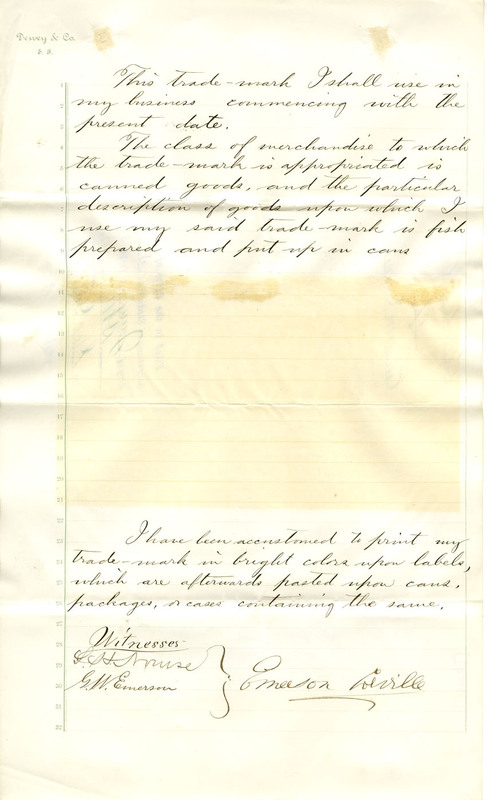 Dewey & Co.
S. F.
This trade-mark I shall use in
my business commencing with the
present date.
The class of merchandise to which
the trade-mark is appropriated is
canned goods, and the particular
description of goods upon which I
use my said trade-mark is fish
prepared and put up in cans
I have been accustomed to print my
trade-mark in bright colors upon labels,
which are afterwards pasted upon cans,
packages, or cases containing the same.
Witnesses
G. W. Emerson
Emerson Corville